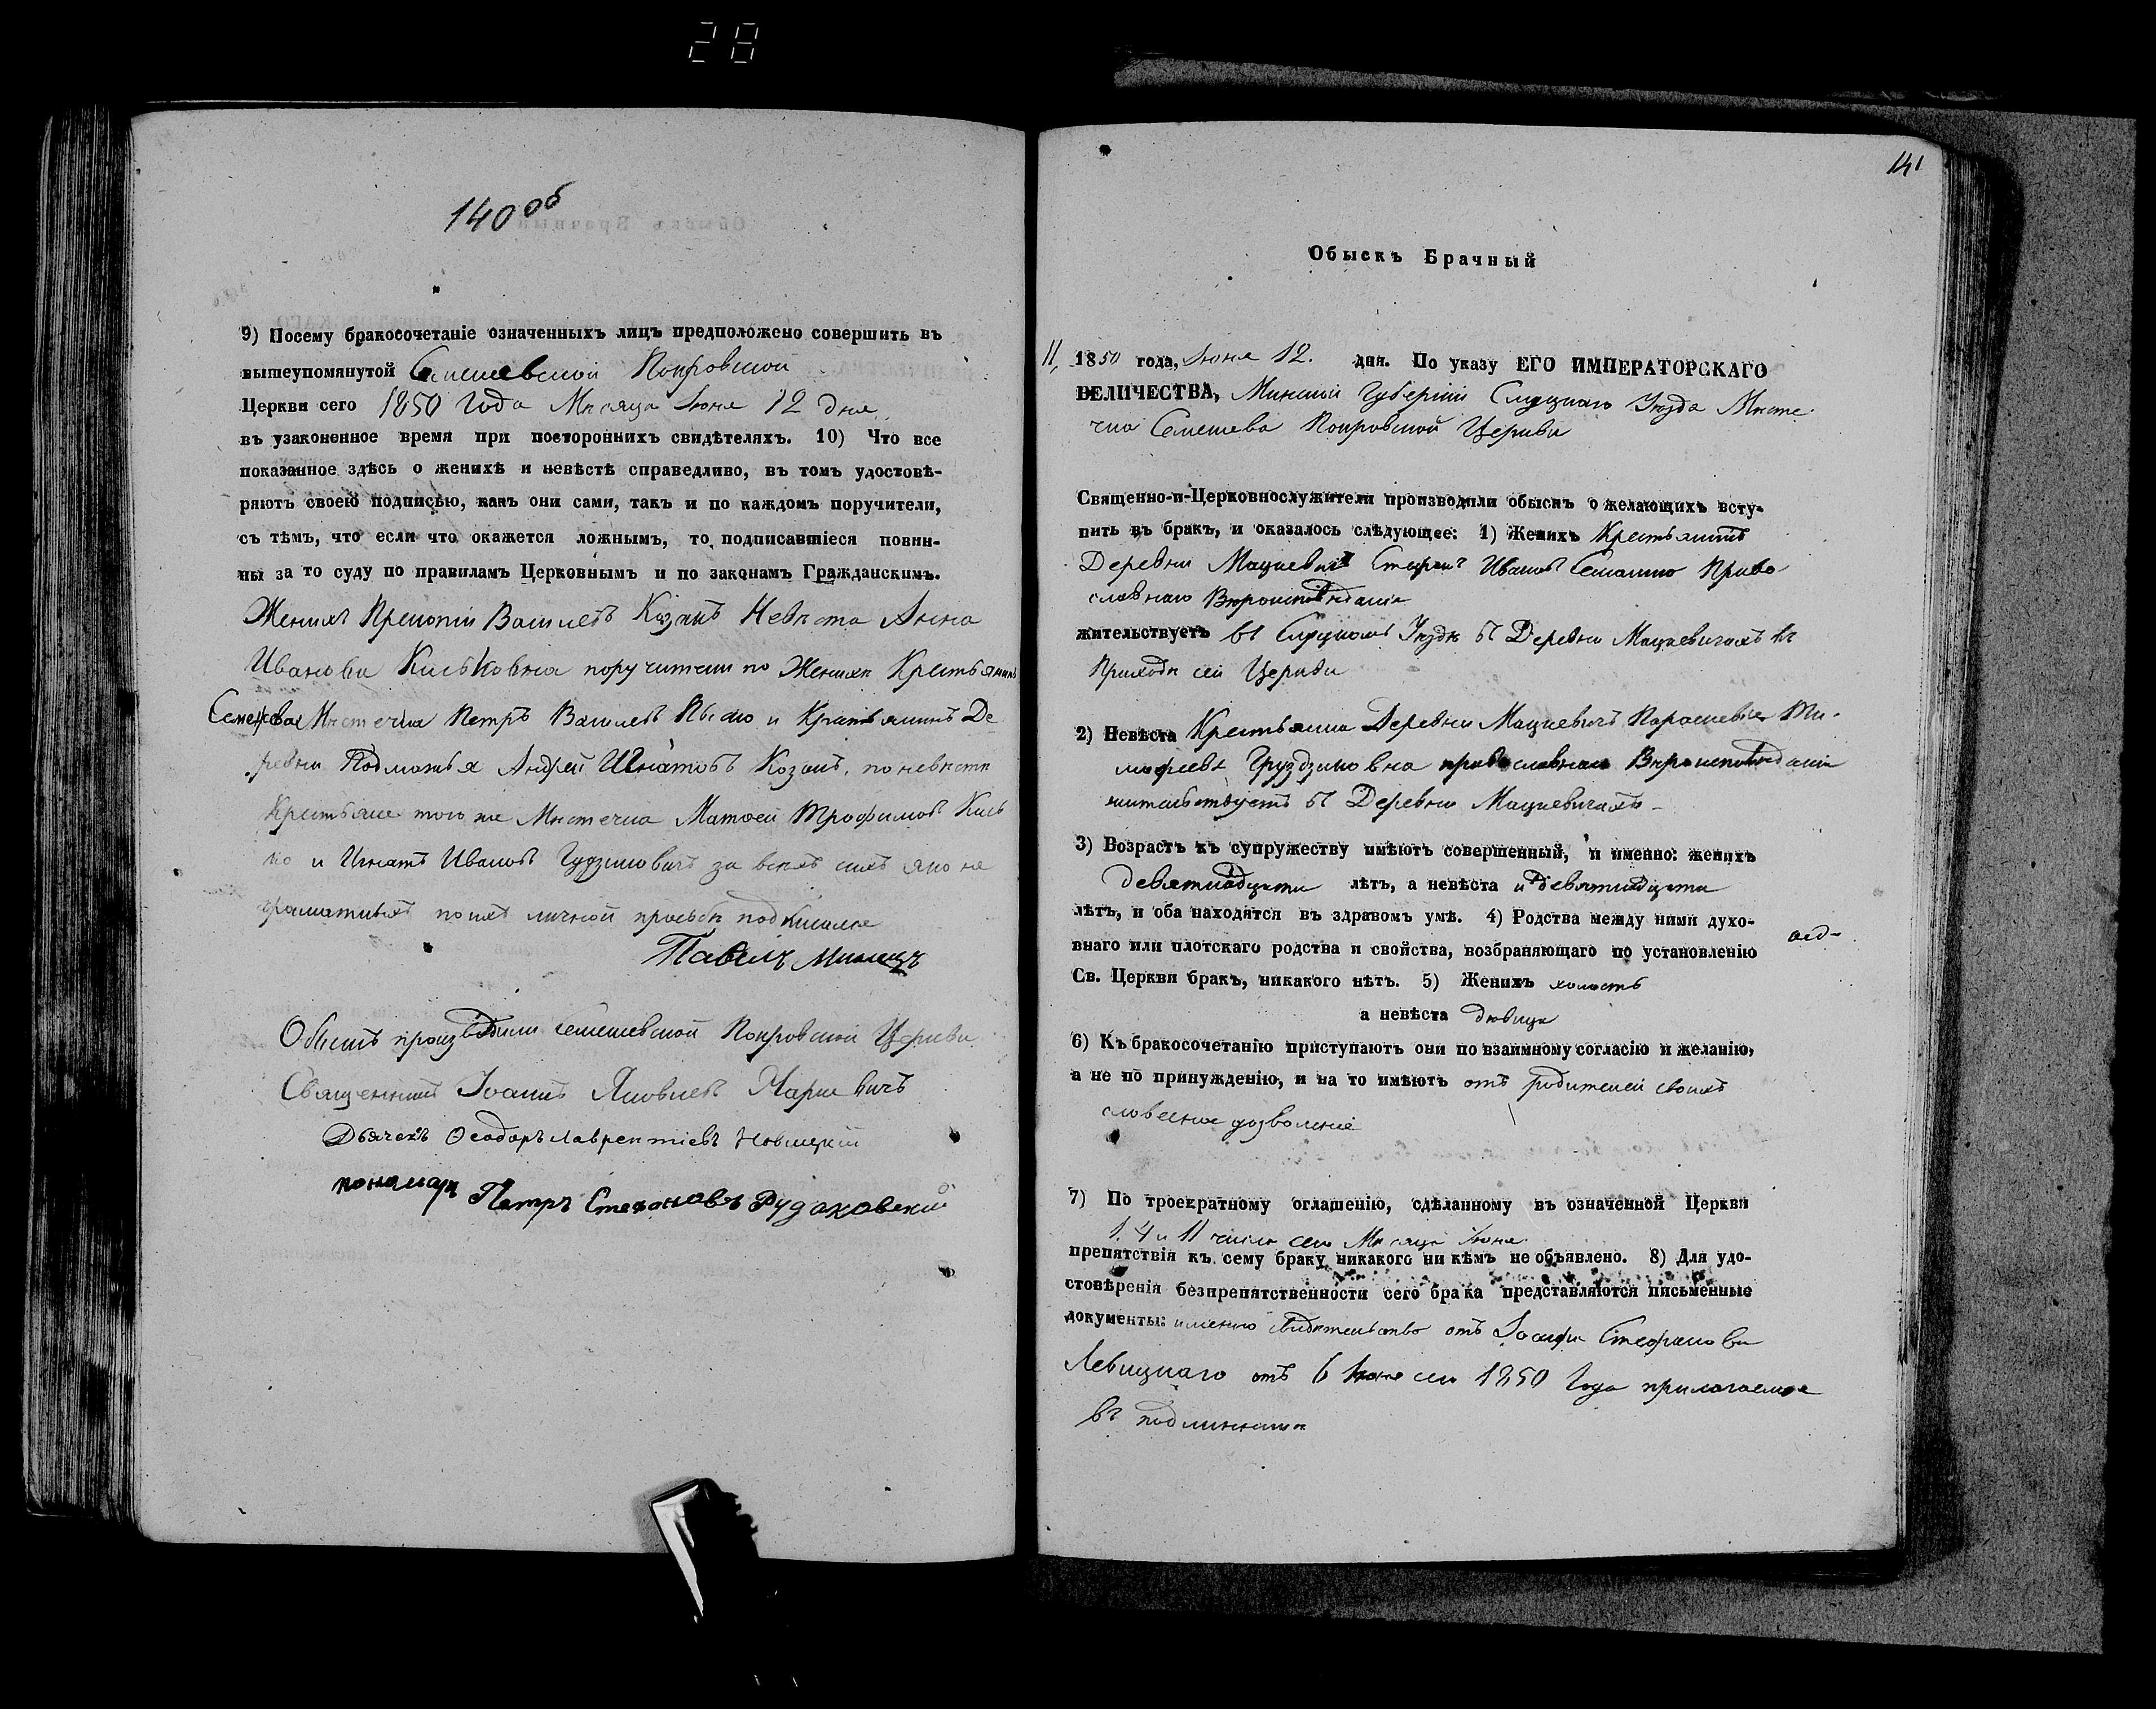 28
140 об
9) Посему бракосочетаніе означенныхъ лицъ предположено совершить въ
вышеупомянутой Семежевской Покровской
Церкви сего 1850 Года Мѣсяца Іюня 12 дня
въ узаконенное время при постороннихъ свидѣтеляхъ. 10) Что все
показанное здѣсь о женихѣ и невѣстѣ справедливо, въ томъ удостовѣ-
ряютъ своею подписью, какъ они сами, такъ и по каждомъ поручители,
съ тѣмъ, что если что окажется ложнымъ, то подписавшіеся повин-
ны за то суду по правиламъ Церковнымъ и по законамъ Гражданскимъ.
Женихъ Прокопій Васильевъ Козакъ Невѣста Анна
Иванова Киськовна поручители по Женихѣ Крестьянинъ
Семежева Мѣстечка Петръ Васильевъ и Крестьянинъ Де
ревни Подмотья Андрей Игнатовъ Козакъ, по невѣстѣ
Крестьяне того же Мѣстечка Матѳей Трофимовъ Кись
ко и Игнатъ Ивановъ за всѣхъ сихъ яко не
граматныхъ по ихъ личной прозьбѣ подписался
Павелъ
Обыскъ производили Семежевской Покровской Церкви
Священникъ Іоаннъ Яковлевъ
Дьячекъ Ѳеодоръ Лаврентіевъ Новицкій
пономарь Петръ Стефановъ Рудаковскій
141
Обыскъ Брачный
11, 1850 года, Іюня 12. дня. По указу ЕГО ИМПЕРАТОРСКАГО
ВЕЛИЧЕСТВА, Минской Губерніи Слуцкаго Уѣзда Мѣсте
чка Семежева Покровской Церкви
Священно-и-Церковнослужители производили обыскъ о желающихъ всту-
пить въ бракъ, и оказалось слѣдующее: 1) Женихъ Крестьянинъ
Деревни Мацкевичъ Ивановъ Право
славнаго Вѣроисповѣданія
жительствуетъ въ Слуцкомъ Уѣздѣ въ Деревни Мацкевичахъ въ
Приходѣ сей Церкви
2) Невѣста Крестьянка Деревни Мацкевичъ Параскевія Ти-
мофеева Груздзиковна православнаго Вѣроисповѣданія
жительствуетъ въ Деревни Мацкевичахъ
3) Возрастъ къ супружеству имѣютъ совершенный, и именно: женихъ
девятнадцати лѣтъ, а невѣста и девятнадцати
лѣтъ, и оба находятся въ здравомъ умѣ. 4) Родства между ними духо-
внаго или плотскаго родства и свойства, возбраняющаго по установленію
Св. Церкви бракъ, никакого нѣтъ. 5) Женихъ холостъ
а невѣста дѣвица
6) Къ бракосочетанію приступаютъ они по взаимному согласію и желанію,
а не по принужденію, и на то имѣютъ отъ родителей своихъ
словесное дозволеніе
7) По троекратному оглашенію, сдѣланному въ означенной Церкви
1. 4 и 11 числа сего Мѣсяца Іюня
препятствія къ сему браку никакого ни кѣмъ не объявлено. 8) Для удо-
стовѣренія безпрепятственности сего брака представляются письменные
документы: именно свидѣтельство отъ Стефанова
Левицкаго отъ 6 Іюня сего 1850 Года прилагаемое
въ подлинникѣ